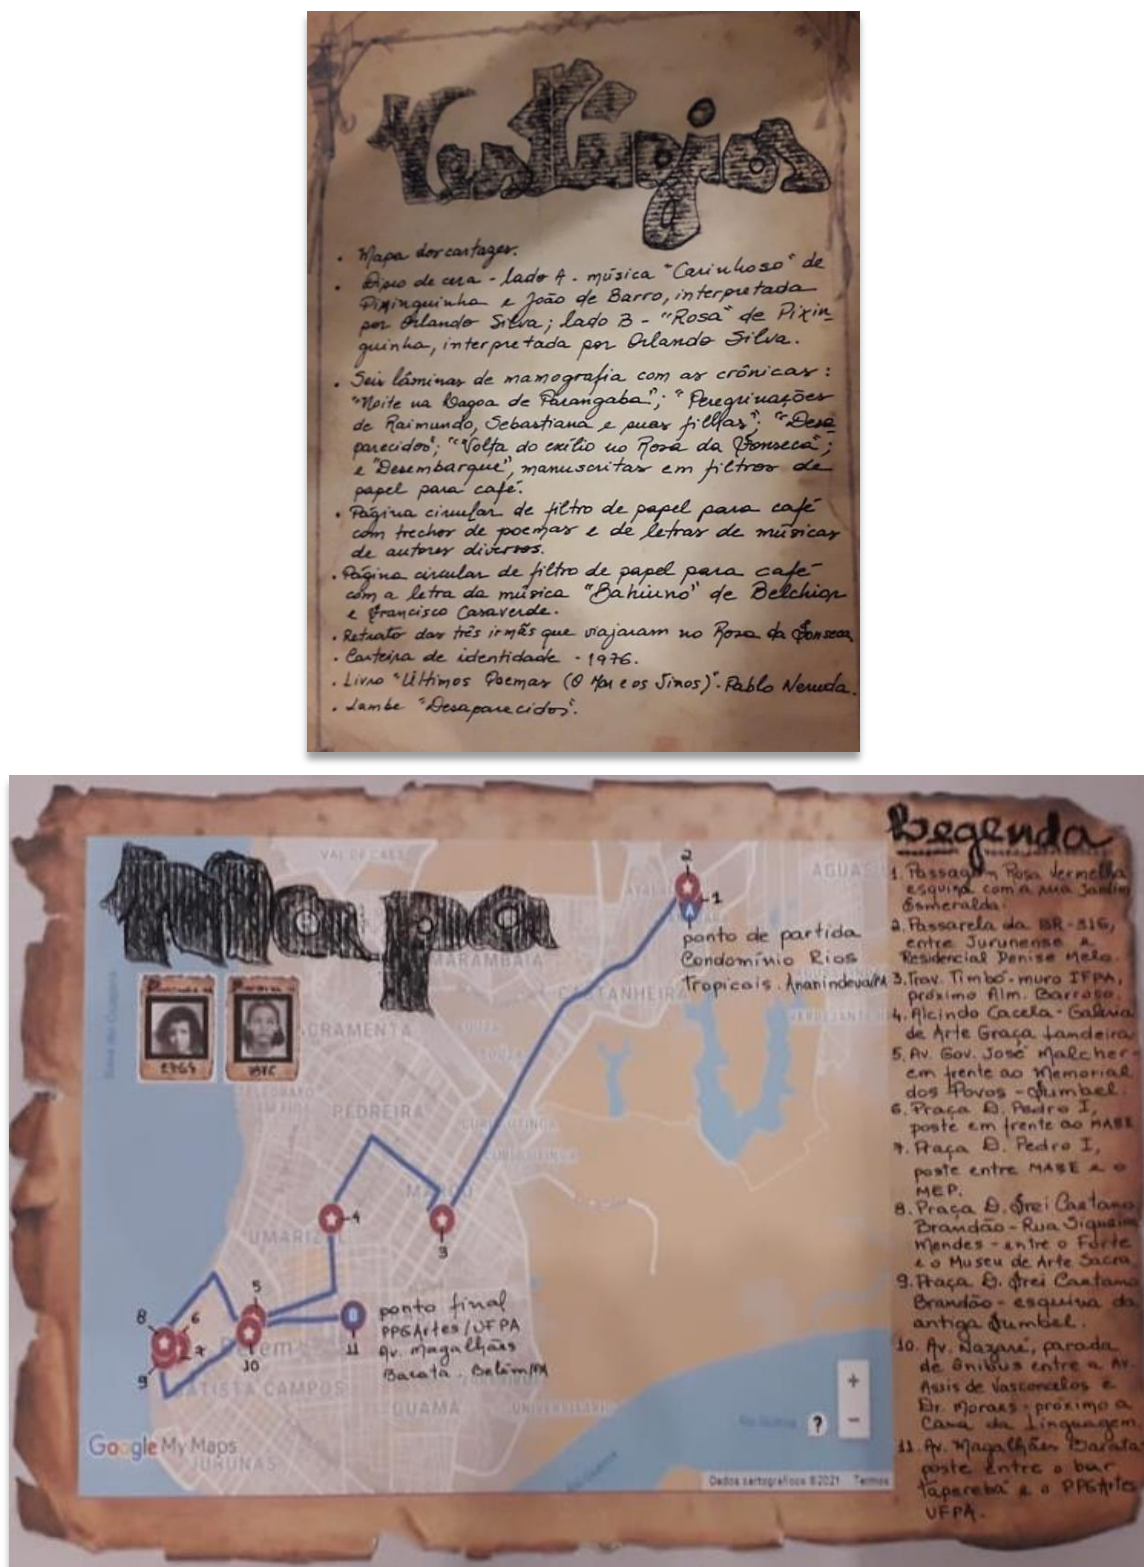 Vestígios
. Mapa dos cartazes.
. Disco de cera - lado A - música "Carinhoso" de
Pixinguinha e João de Barro, interpretada
por Orlando Silva; lado B - "Rosa" de Pixin-
guinha, interpretada por Orlando Silva.
. Seis lâminas de mamografia com as crônicas:
"Noite na Lagoa de Parangaba"; "Peregrinações
de Raimundo, Sebastiana e suas filhas"; "Desa
parecidos"; "Volta do exílio no Rosa da Fonseca";
e "Desembarque", manuscritas em filtros de
papel para café.
. Página circular de filtro de papel para café
com trechos de poemas e de letras de músicas
de autores diversos.
. Página circular de filtro de papel para café
com a letra da música "Bahiuno" de Belchior
e Francisco Casaverde.
. Retrato das três irmãs que viajaram no Rosa da Fonseca
. Carteira de identidade - 1976.
. Livro "Últimos Poemas (O Mar e os Sinos)" - Pablo Neruda.
. Lambe "Desaparecidos".
Mapa
VAL DE CAES
AGUAS
MARAMBAIA
CASTANHEIRA
SACRAMENTA
SOUZA
PEDREIRA
CURIÓ-UTINGA
MARCO
UMARIZAL
Belém
BATISTA CAMPOS
GUAMÁ
UNIVERSITÁRIO
JURUNAS
2
1
A
ponto de partida
Condomínio Rios
Tropicais. Ananindeua/PA
4
3
5
8
6
7
9
10
11
ponto final
PPGArtes/UFPA
Av. Magalhães
Barata. Belém/PA
Google My Maps
+
?
−
Dados cartográficos ©2021 Termos
Legenda
1. Passagem Rosa Vermelha
esquina com a rua Jardim
Esmeralda.
2. Passarela da BR-316,
entre Jurunense e
Residencial Denise Melo.
3. Trav. Timbó - muro IFPA,
próximo Alm. Barroso.
4. Alcindo Cacela - Galeria
de Arte Graça Landeira
5. Av. Gov. José Malcher -
em frente ao Memorial
dos Povos - Fumbel.
6. Praça D. Pedro I,
poste em frente ao MABE
7. Praça D. Pedro I,
poste entre MABE e o
MEP.
8. Praça D. Frei Caetano
Brandão - Rua Siqueira
Mendes - entre o Forte
e o Museu de Arte Sacra.
9. Praça D. Frei Caetano
Brandão - esquina da
antiga Fumbel.
10. Av. Nazaré, parada
de ônibus entre a Av.
Assis de Vasconcelos e
Dr. Moraes - próximo a
Casa da Linguagem.
11. Av. Magalhães Barata
poste entre o bar
Taperebá e o PPGArtes
UFPA.